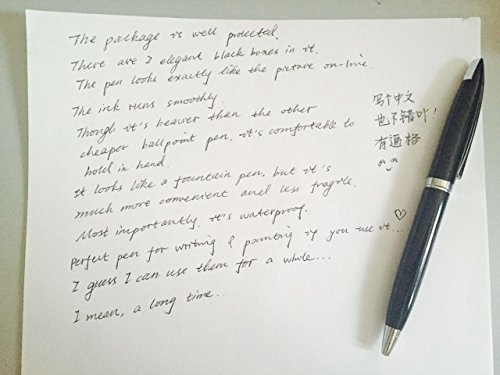 The package is well protected.
There are 2 elegant black boxes in it.
The pen looks exactly like the picture on-line.
The ink runs smoothly
Though it's heaver than the other
cheaper ballpoint pen, it's comfortable to
hold in hand.
It looks like a fountain pen, but it's
much more convenient and less fragile.
Most importantly, it's waterproof.
Perfect pen for writing & painting if you use it...♡
I guess I can use them for a whole...
I mean, a long time...
写个中文
也不错叶!
有逼格